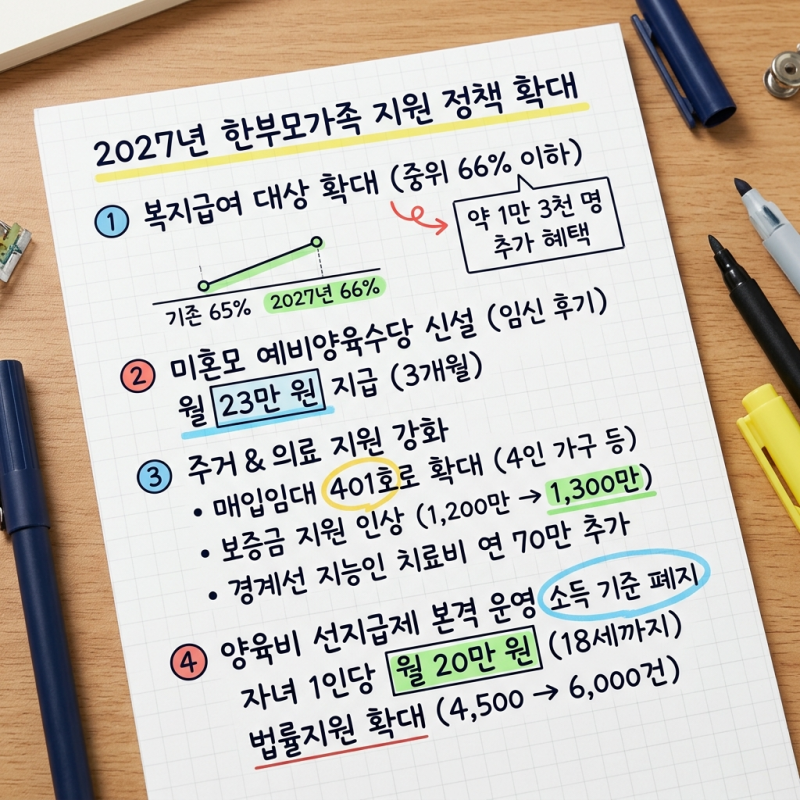 2027년 한부모가족 지원 정책 확대
1 복지급여 대상 확대 (중위 66% 이하)
약 1만 3천 명
추가 혜택
기존 65% 2027년 66%
2 미혼모 예비양육수당 신설 (임신 후기)
월 23만 원 지급 (3개월)
3 주거 & 의료 지원 강화
• 매입임대 401호로 확대 (4인 가구 등)
• 보증금 지원 인상 (1,200만 → 1,300만)
• 경계선 지능인 치료비 연 70만 추가
4 양육비 선지급제 본격 운영 소득 기준 폐지
자녀 1인당 월 20만 원 (18세까지)
법률지원 확대 (4,500 → 6,000건)